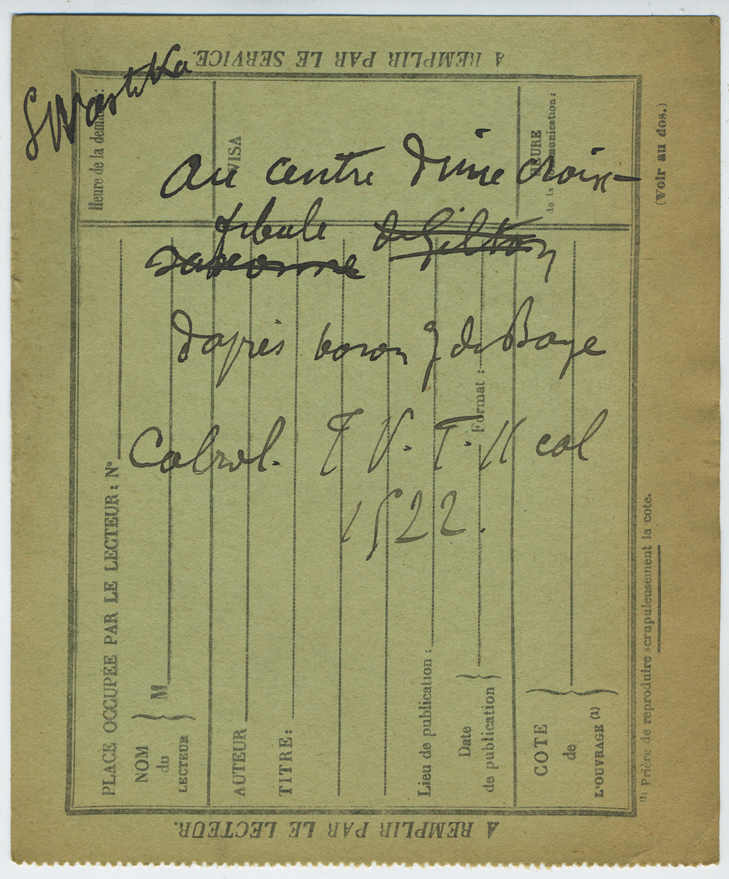 Swastika
Au centre d'une croix
fibule de Gilton
saxonne
d'après baron J de Baye
Cabrol. T V. T. II col
1522.
A REMPLIR PAR LE SERVICE.
Heure de la demande:
VISA
HEURE
de la communication:
(Voir au dos.)
PLACE OCCUPÉE PAR LE LECTEUR: N°
NOM
du
LECTEUR
M
AUTEUR
TITRE:
Lieu de publication:
Format:
Date
de publication
COTE
de
L'OUVRAGE (1)
(1) Prière de reproduire scrupuleusement la cote.
A REMPLIR PAR LE LECTEUR.